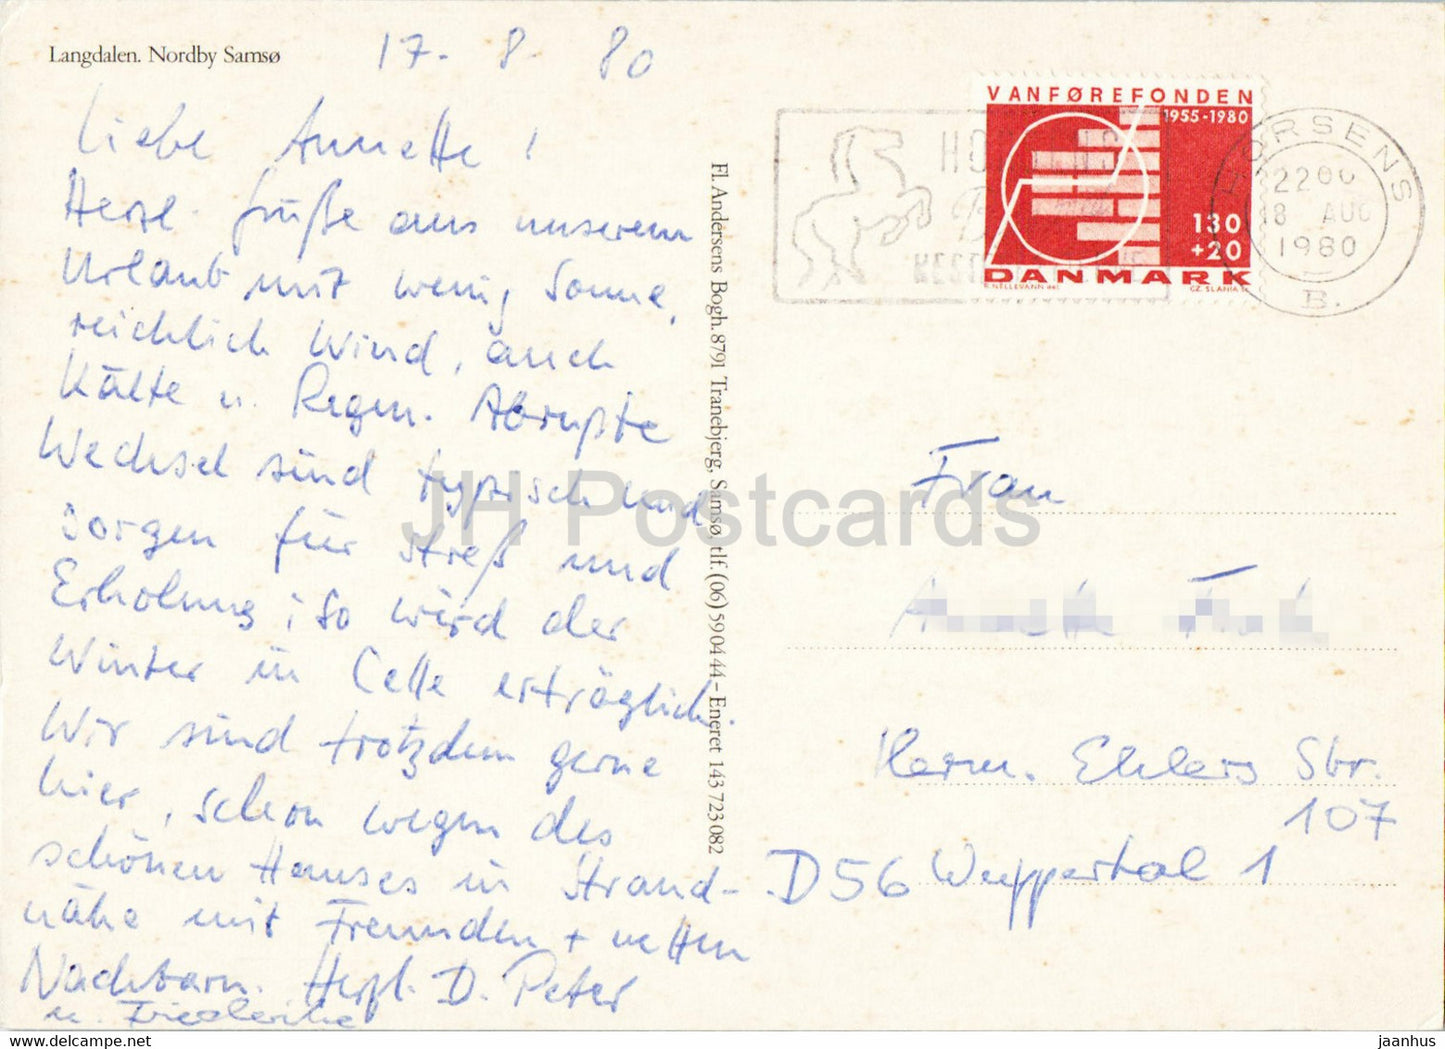 Langdalen. Nordby Samsø
17. 8. 80
Liebe Annette!
Herzl. Grüße aus unserem
Urlaub mit wenig Sonne,
reichlich Wind, auch
Kälte u. Regen. Abrupte
Wechsel sind typisch und
sorgen für Streß und
Erholung; so wird der
Winter in Celle erträglich.
Wir sind trotzdem gerne
hier, schon wegen des
schönen Hauses in Strand-
nähe mit Freunden + netten
Nachbarn. Herzl. D. Peter
u. Friederike
Fl. Andersens Bogh. 8791 Tranebjerg, Samsø, tlf. (06) 59 04 44 – Eneret 143 723 082
VANFØREFONDEN
1955-1980
130
+20
DANMARK
CZ. SLANIA
HORSENS
22 00
18 AUG
1980
B.
Frau
Herm. Ehlers Str.
107
D56 Wuppertal 1
JH Postcards
https://www.delcampe.net
jaanhus